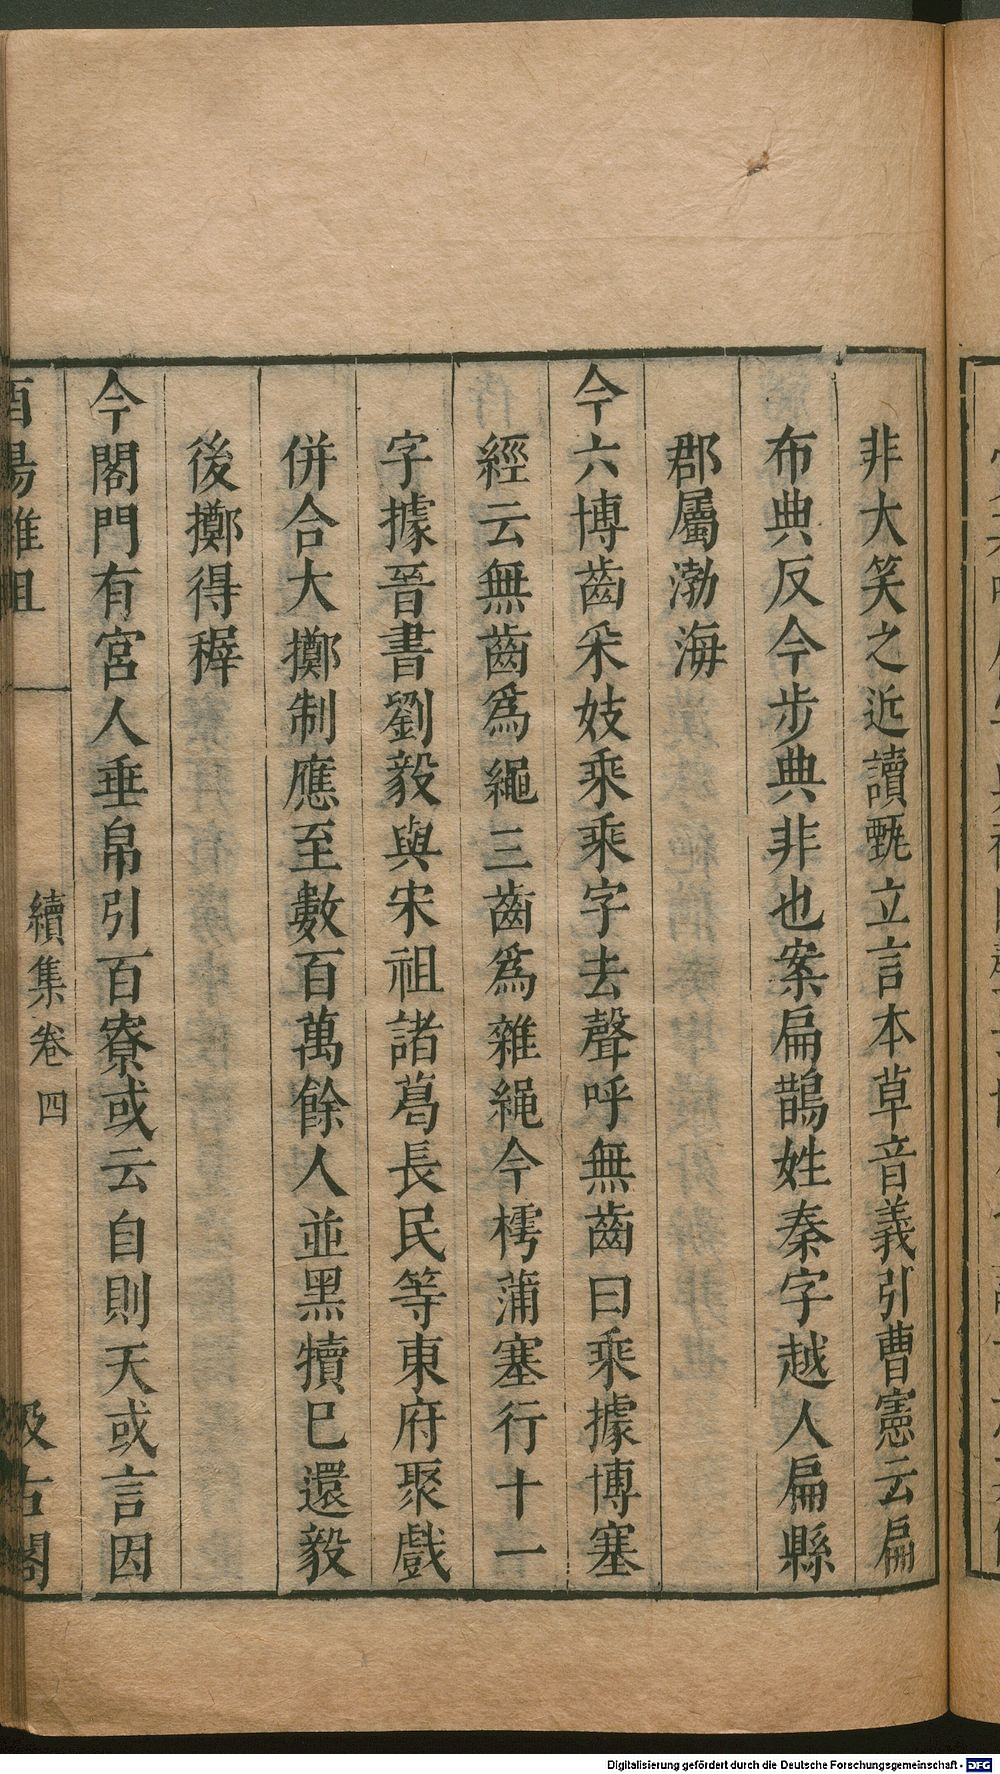 非大笑之近讀甄立言本草音義引曹憲云扁
布典反今步典非也案扁鵲姓秦字越人扁縣
郡屬渤海
今六博齒采妓乘乘字去聲呼無齒曰乘據博塞
經云無齒爲繩三齒爲雜繩今樗蒲塞行十一
字據晉書劉毅與宋祖諸葛長民等東府聚戲
併合大擲制應至數百萬餘人並黑犢巳還毅
後擲得稺
今閣門有宮人垂帛引百寮或云自則天或言因
酉陽雜俎
續集卷四
汲古閣
Digitalisierung gefördert durch die Deutsche Forschungsgemeinschaft - DFG